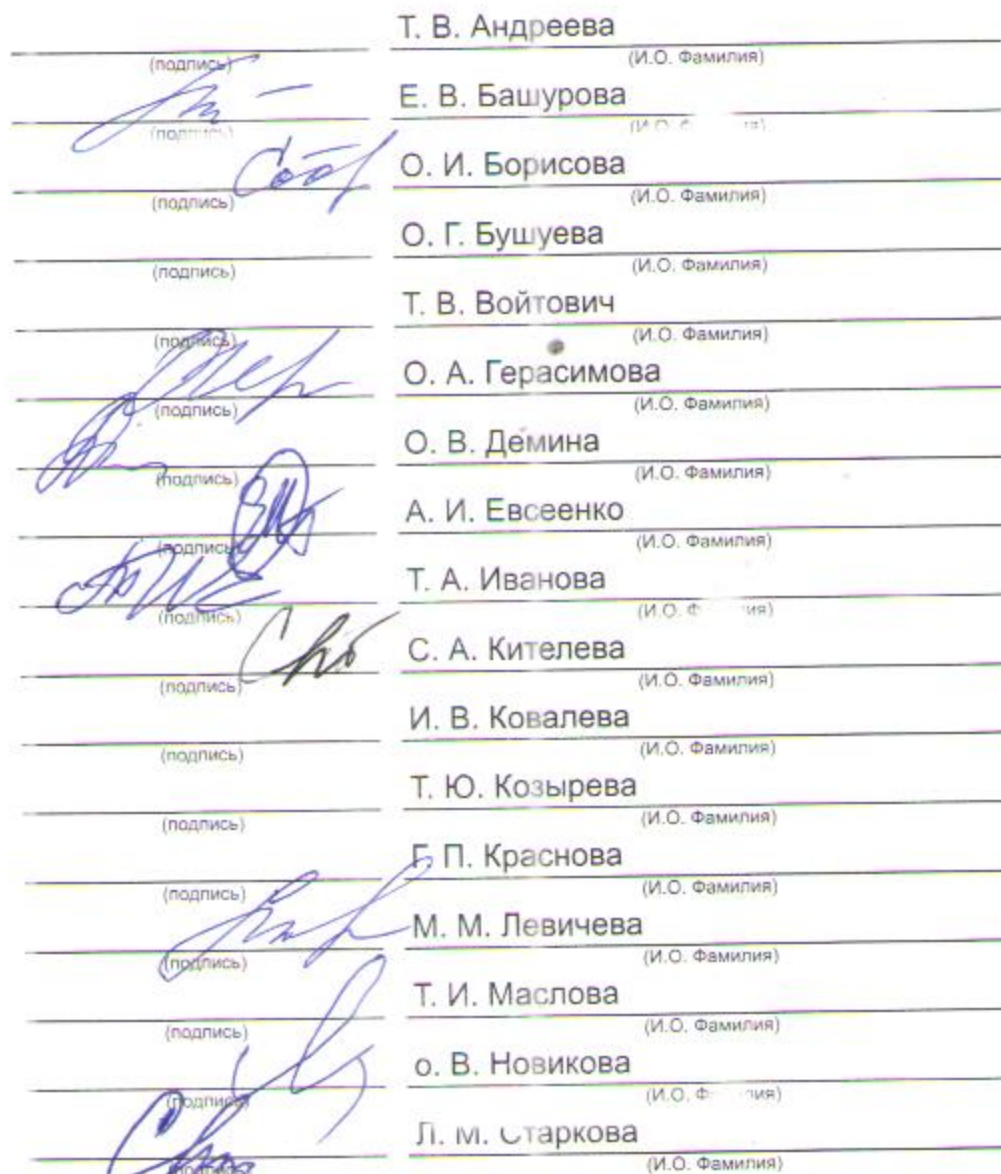 Т. В. Андреева
(подпись) (И.О. Фамилия)
Е. В. Башурова
(подпись) (И.О.
О. И. Борисова
(подпись) (И.О. Фамилия)
О. Г. Бушуева
(подпись) (И.О. Фамилия)
Т. В. Войтович
(подпись) (И.О. Фамилия)
О. А. Герасимова
(подпись) (И.О. Фамилия)
О. В. Демина
(подпись) (И.О. Фамилия)
А. И. Евсеенко
(подпись) (И.О. Фамилия)
Т. А. Иванова
(подпись) (И.О.
С. А. Кителева
(подпись) (И.О. Фамилия)
И. В. Ковалева
(подпись) (И.О. Фамилия)
Т. Ю. Козырева
(подпись) (И.О. Фамилия)
Г. П. Краснова
(подпись) (И.О. Фамилия)
М. М. Левичева
(подпись) (И.О. Фамилия)
Т. И. Маслова
(подпись) (И.О. Фамилия)
о. В. Новикова
(подпись) (И.О.
Л. М. Старкова
(И.О. Фамилия)